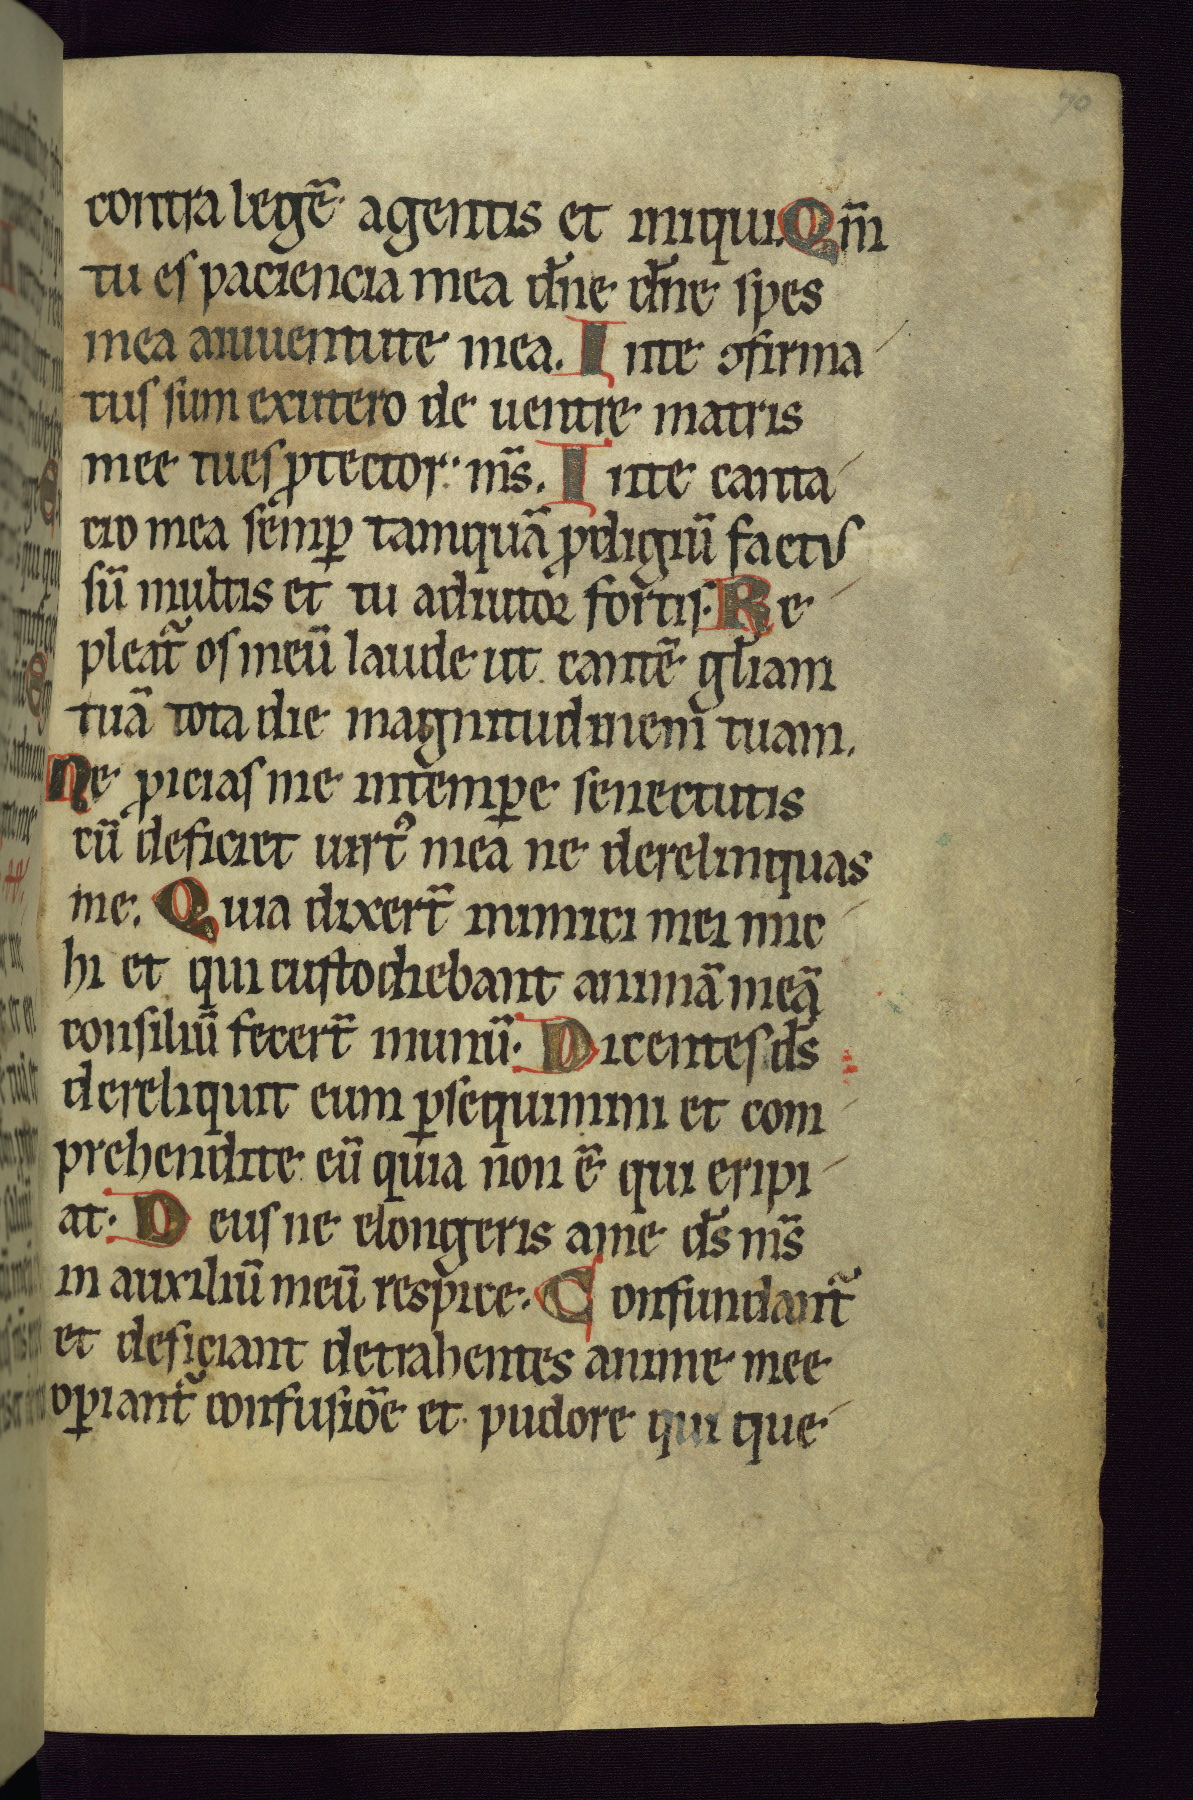 70
contra legē agentis et iniqui. Qm̄
tu es paciencia mea dn̄e dn̄e spes
mea aiuuentute mea. Inte ꝯfirma
tus sum exutero de uentre matris
mee tues ꝓtector m̄s. Inte canta
cio mea semꝑ tamquā ꝓdigiū factus
sū multis et tu adiutor fortis. Re
pleat̄ os meū laude ut cantē gl̄iam
tuā tota die magnitudinem tuam.
Ne ꝓicias me intempe senectutis
cū deficiet uirt᾿ mea ne derelinquas
me. Quia dixert̄ inimici mei mic
hi et qui custodiebant animā meā
consiliū fecert̄ inunū. Dicentes ds̄
dereliquit eum ꝑsequimini et com
prehendite eū quia non ē qui eripi
at. Deus ne elongeris ame ds̄ m̄s
in auxiliū meū respice. Confundant̄
et deficiant detrahentes anime mee
oꝑiant̄ confusiōe et pudore qui que